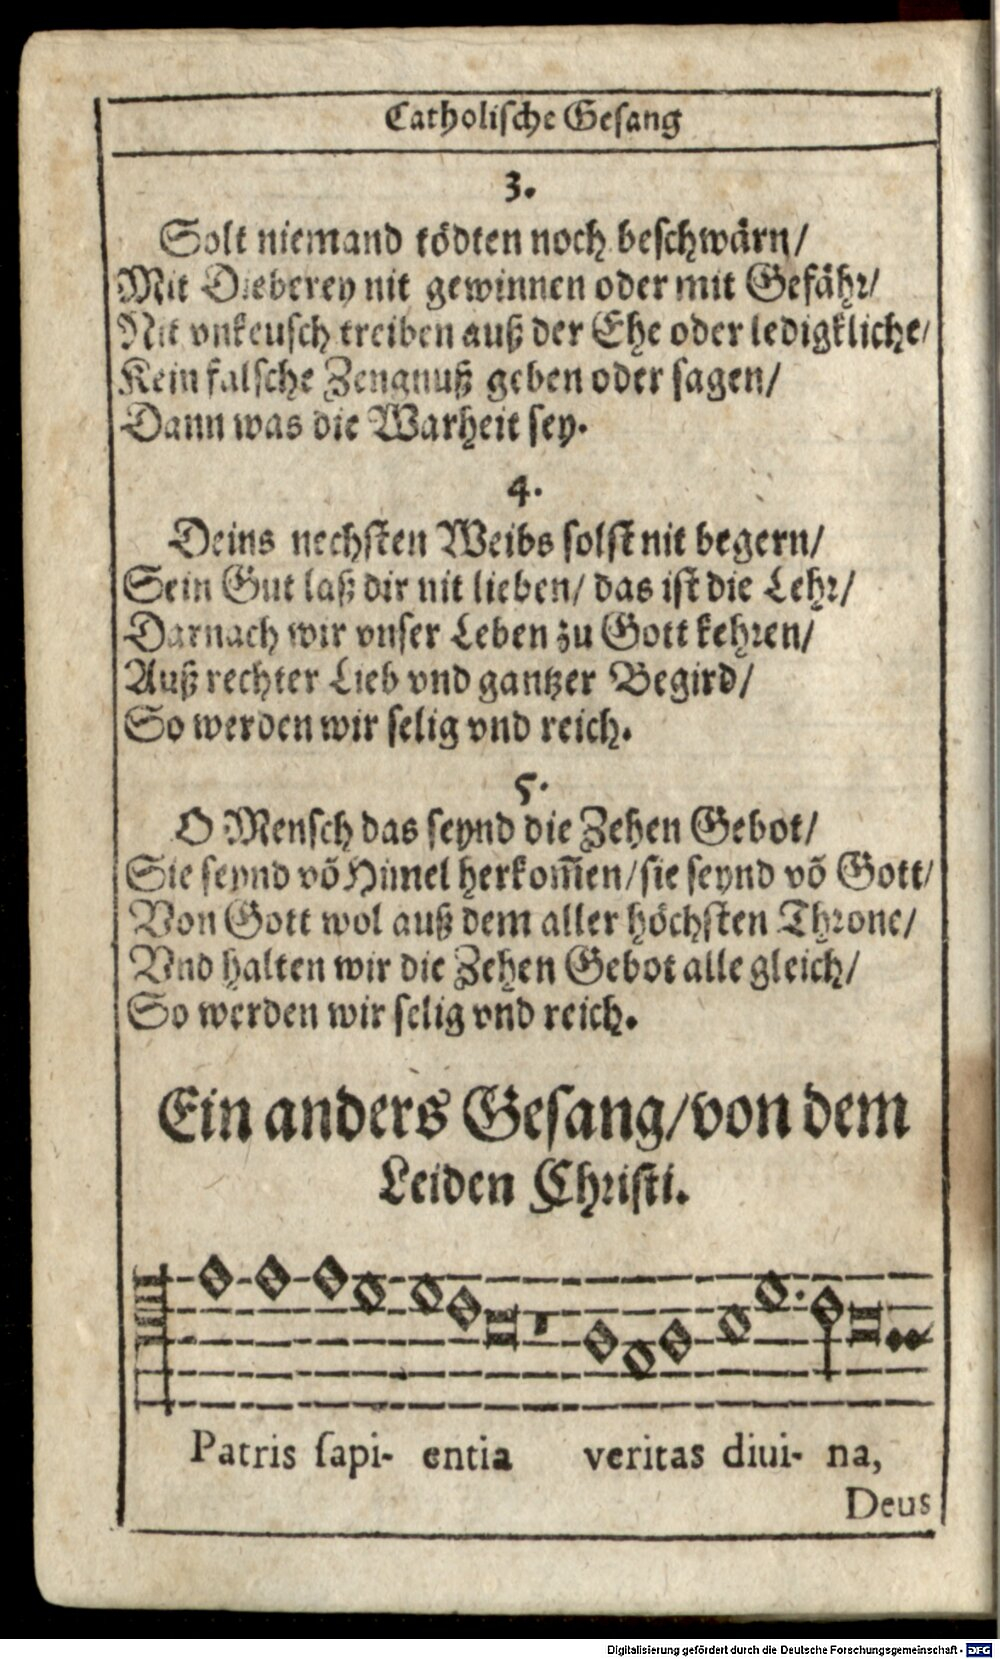 Catholische Gesang
3.
Solt niemand tödten noch beschwärn/
Mit Dieberey nit gewinnen oder mit Gefähr/
Nit vnkeusch treiben auß der Ehe oder ledigkliche/
Kein falsche Zengnuß geben oder sagen/
Dann was die Warheit sey.
4.
Deins nechsten Weibs solst nit begern/
Sein Gut laß dir nit lieben/ das ist die Lehr/
Darnach wir vnser Leben zu Gott kehren/
Auß rechter Lieb vnd gantzer Begird/
So werden wir selig vnd reich.
5.
O Mensch das seynd die Zehen Gebot/
Sie seynd võ Himel herkom̃en/sie seynd võ Gott/
Von Gott wol auß dem aller höchsten Throne/
Vnd halten wir die Zehen Gebot alle gleich/
So werden wir selig vnd reich.
Ein anders Gesang/von dem
Leiden Christi.
Patris sapi- entia veritas diui- na,
Deus
Digitalisierung gefördert durch die Deutsche Forschungsgemeinschaft - DFG